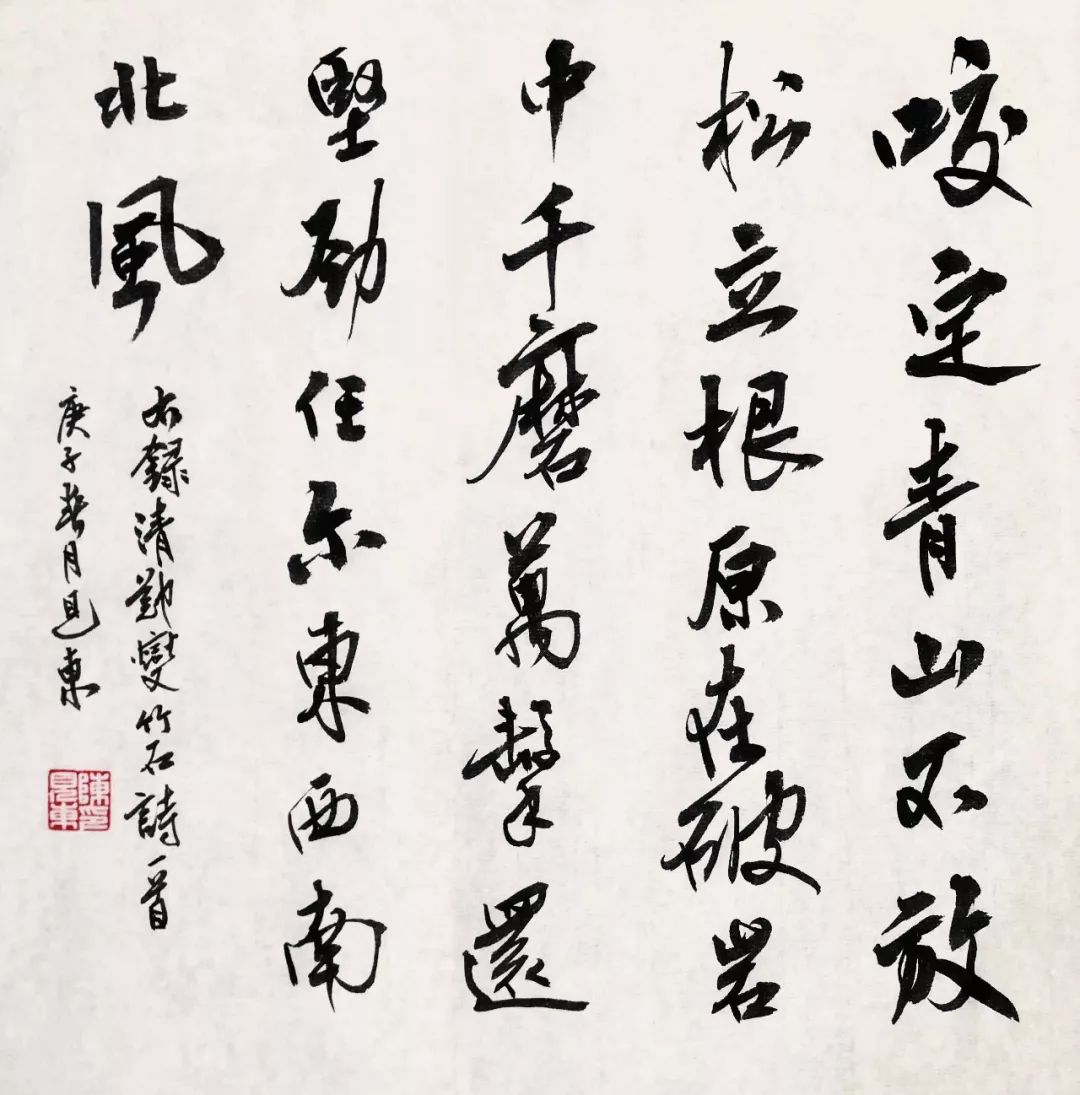 咬定青山不放
松立根原在破岩
中千磨萬擊還
堅勁任尔東西南
北風
右錄清鄭燮竹石詩一首
庚子春月東
陳印東